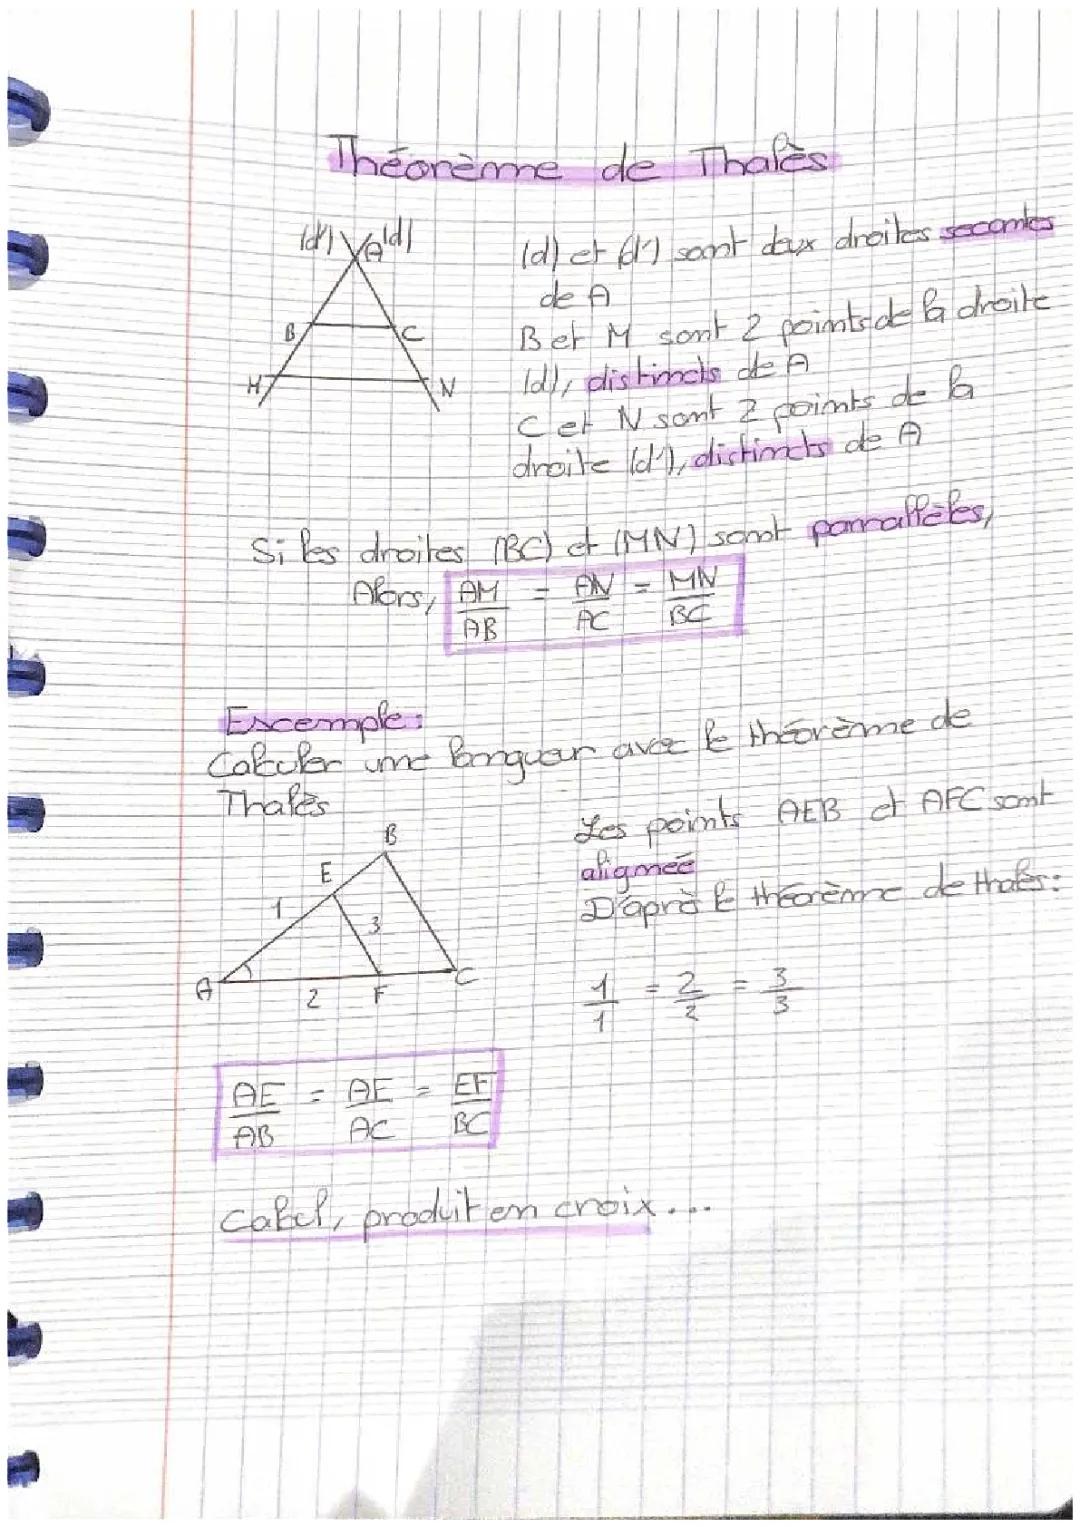 Théorème de Thalès
(d') A (d)
B C
M N
(d) et (d') sont deux droites secantes
de A
B et M sont 2 points de la droite
(d), distincts de A
C et N sont 2 points de la
droite (d'), distincts de A
Si les droites (BC) et (MN) sont parrallèles,
Alors, AM/AB = AN/AC = MN/BC
Escemple:
Calculer une longueur avec le théorème de
Thalès
B
E
1 3
A 2 F C
Les points AEB et AFC sont
aligneé
D'aprè le théorème de thalès:
1/1 = 2/2 = 3/3
AE/AB = AE/AC = EF/BC
Calcl, produit en croix...